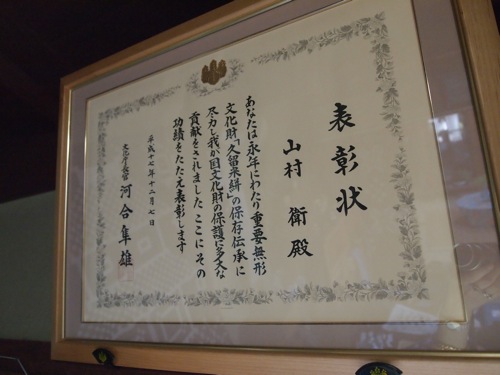 表彰状
山村 衛殿
あなたは永年にわたり重要無形
文化財「久留米絣」の保存伝承に
尽力し我が国文化財の保護に多大な
貢献をされました ここにその
功績をたたえ表彰します
平成十七年十二月七日
文化庁長官 河合隼雄